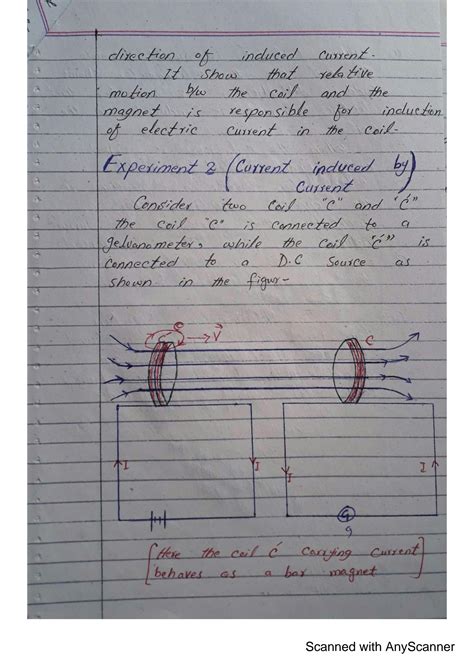 direction of induced current.
It show that relative
motion b/w the coil and the
magnet is responsible for induction
of electric current in the coil.
Experiment 2 (Current induced by
Current)
Consider two coil "C" and "ć"
the coil "C" is connected to a
gelvanometer, while the coil "ć" is
connected to a D.C Source as
shown in the figur-
ć
V
C
I
I
I
I
G
g
[Here the coil ć carrying current
behaves as a bar magnet]
Scanned with AnyScanner